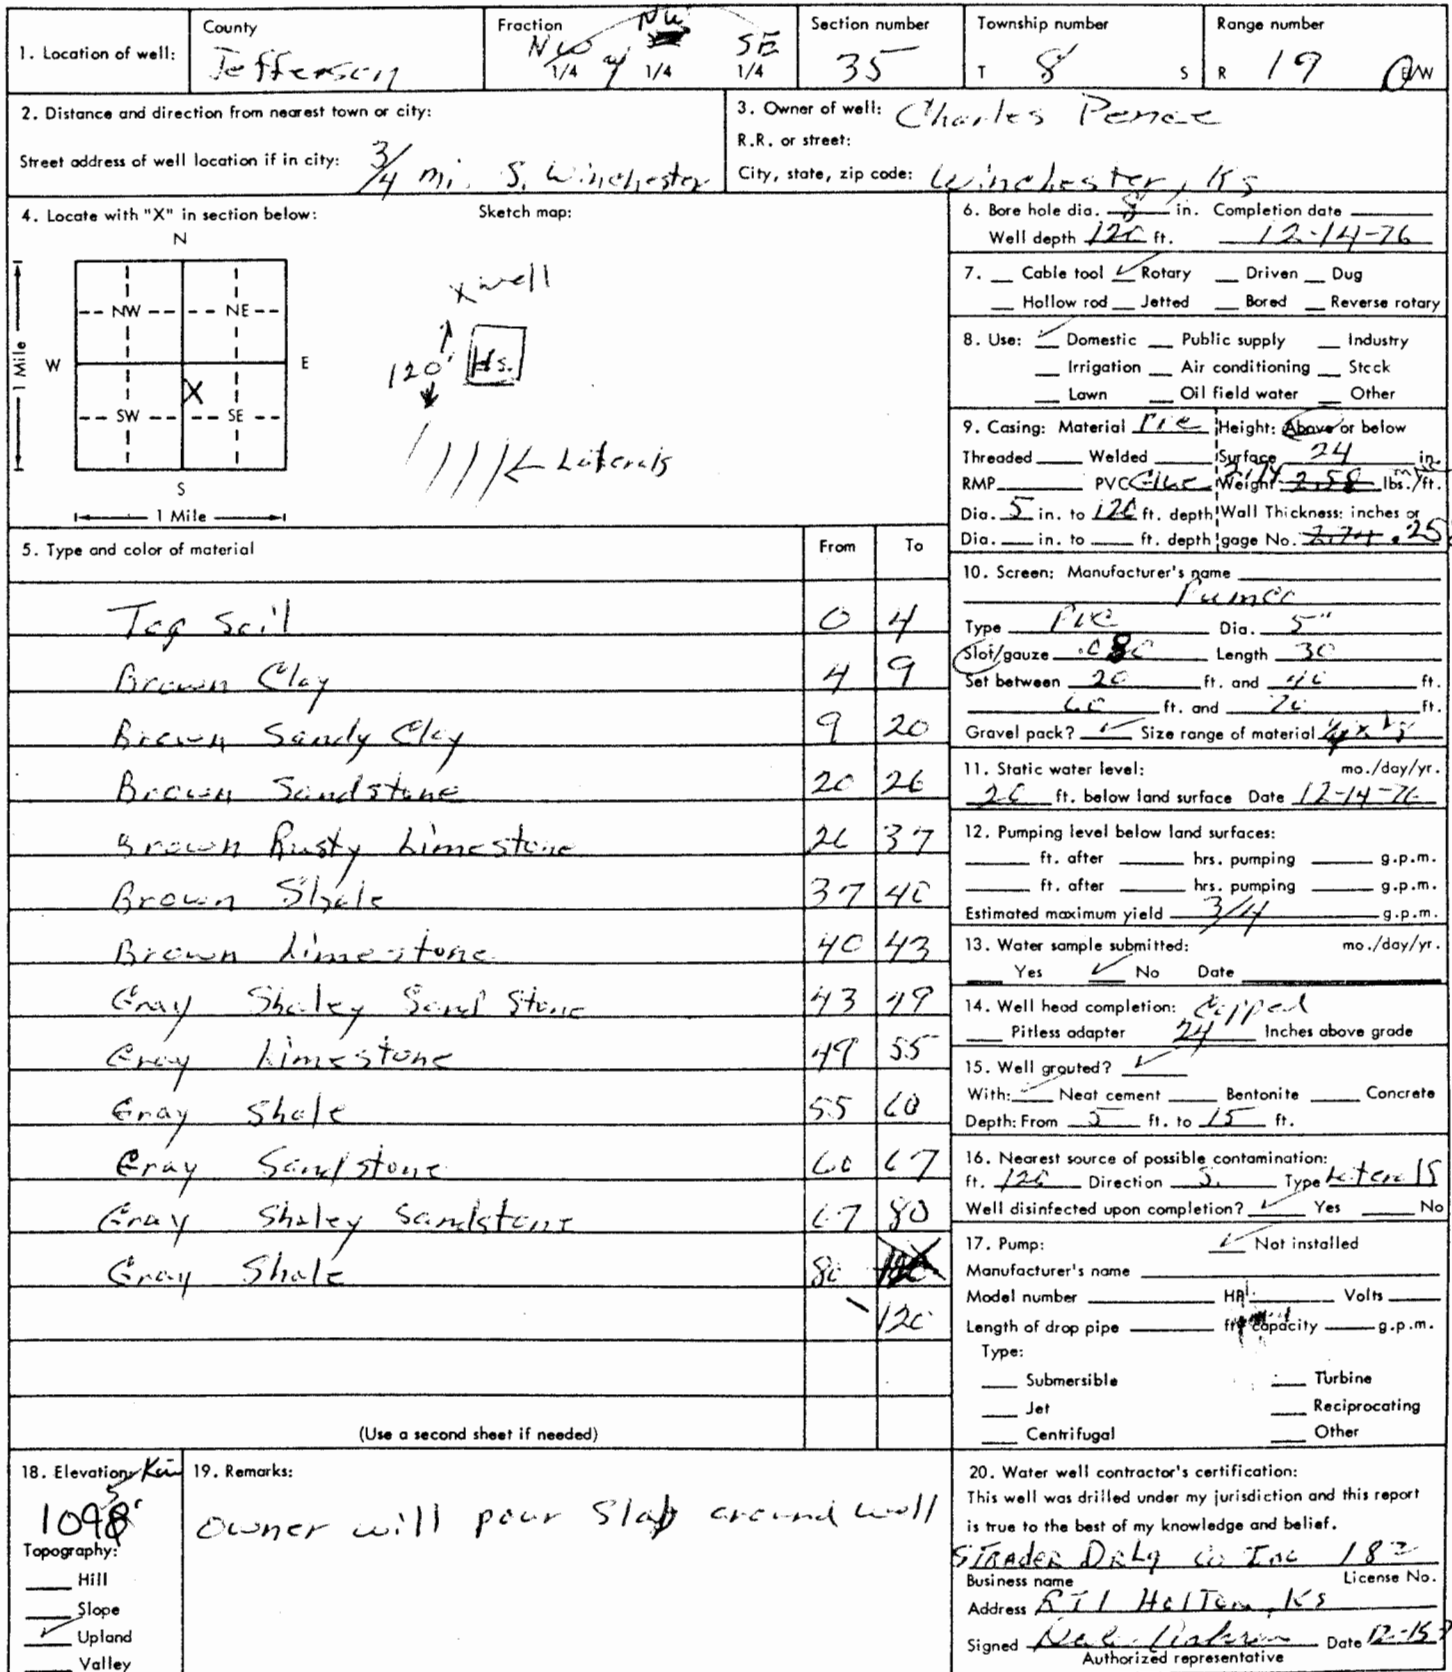 1. Location of well:
County
Jefferson
Fraction
NW 1/4 NW 1/4 SE 1/4
Section number
35
Township number
T 8 S
Range number
R 19 E/W
2. Distance and direction from nearest town or city:
Street address of well location if in city: 3/4 mi. S. Winchester
3. Owner of well: Charles Pence
R.R. or street:
City, state, zip code: Winchester, Ks
4. Locate with "X" in section below:
Sketch map:
N
NW NE
W E
X
SW SE
S
1 Mile
1 Mile
X well
120' Hs.
Laterals
6. Bore hole dia. 8 in. Completion date
Well depth 120 ft. 12-14-76
7. Cable tool ✓ Rotary Driven Dug
Hollow rod Jetted Bored Reverse rotary
8. Use: ✓ Domestic Public supply Industry
Irrigation Air conditioning Stock
Lawn Oil field water Other
9. Casing: Material PVC Height: Above or below
Threaded Welded Surface 24 in.
RMP PVC Glue Weight 2.58 lbs./ft.
Dia. 5 in. to 120 ft. depth Wall Thickness: inches or
Dia. in. to ft. depth gage No. .25
5. Type and color of material From To
Top Soil 0 4
Brown Clay 4 9
Brown Sandy Clay 9 20
Brown Sandstone 20 26
Brown Rusty Limestone 26 37
Brown Shale 37 40
Brown Limestone 40 43
Gray Shaley Sand Stone 43 49
Gray Limestone 49 55
Gray Shale 55 60
Gray Sandstone 60 67
Gray Shaley Sandstone 67 80
Gray Shale 80
120
(Use a second sheet if needed)
10. Screen: Manufacturer's name
Type PVC Dia. 5"
Slot/gauze Length 30
Set between 20 ft. and 40 ft.
60 ft. and 70 ft.
Gravel pack? ✓ Size range of material
11. Static water level: mo./day/yr.
20 ft. below land surface Date 12-14-76
12. Pumping level below land surfaces:
ft. after hrs. pumping g.p.m.
ft. after hrs. pumping g.p.m.
Estimated maximum yield 3/4 g.p.m.
13. Water sample submitted: mo./day/yr.
Yes ✓ No Date
14. Well head completion: Capped
Pitless adapter 24 Inches above grade
15. Well grouted? ✓
With: ✓ Neat cement Bentonite Concrete
Depth: From 5 ft. to 15 ft.
16. Nearest source of possible contamination:
ft. 120 Direction S. Type Laterals
Well disinfected upon completion? ✓ Yes No
17. Pump: ✓ Not installed
Manufacturer's name
Model number HP Volts
Length of drop pipe ft. capacity g.p.m.
Type:
Submersible Turbine
Jet Reciprocating
Centrifugal Other
18. Elevation:
1095'
Topography:
Hill
Slope
✓ Upland
Valley
19. Remarks:
Owner will pour Slab around well
20. Water well contractor's certification:
This well was drilled under my jurisdiction and this report
is true to the best of my knowledge and belief.
STRADER DRLG Co Inc 182
Business name License No.
Address Holton, Ks
Signed Date
Authorized representative